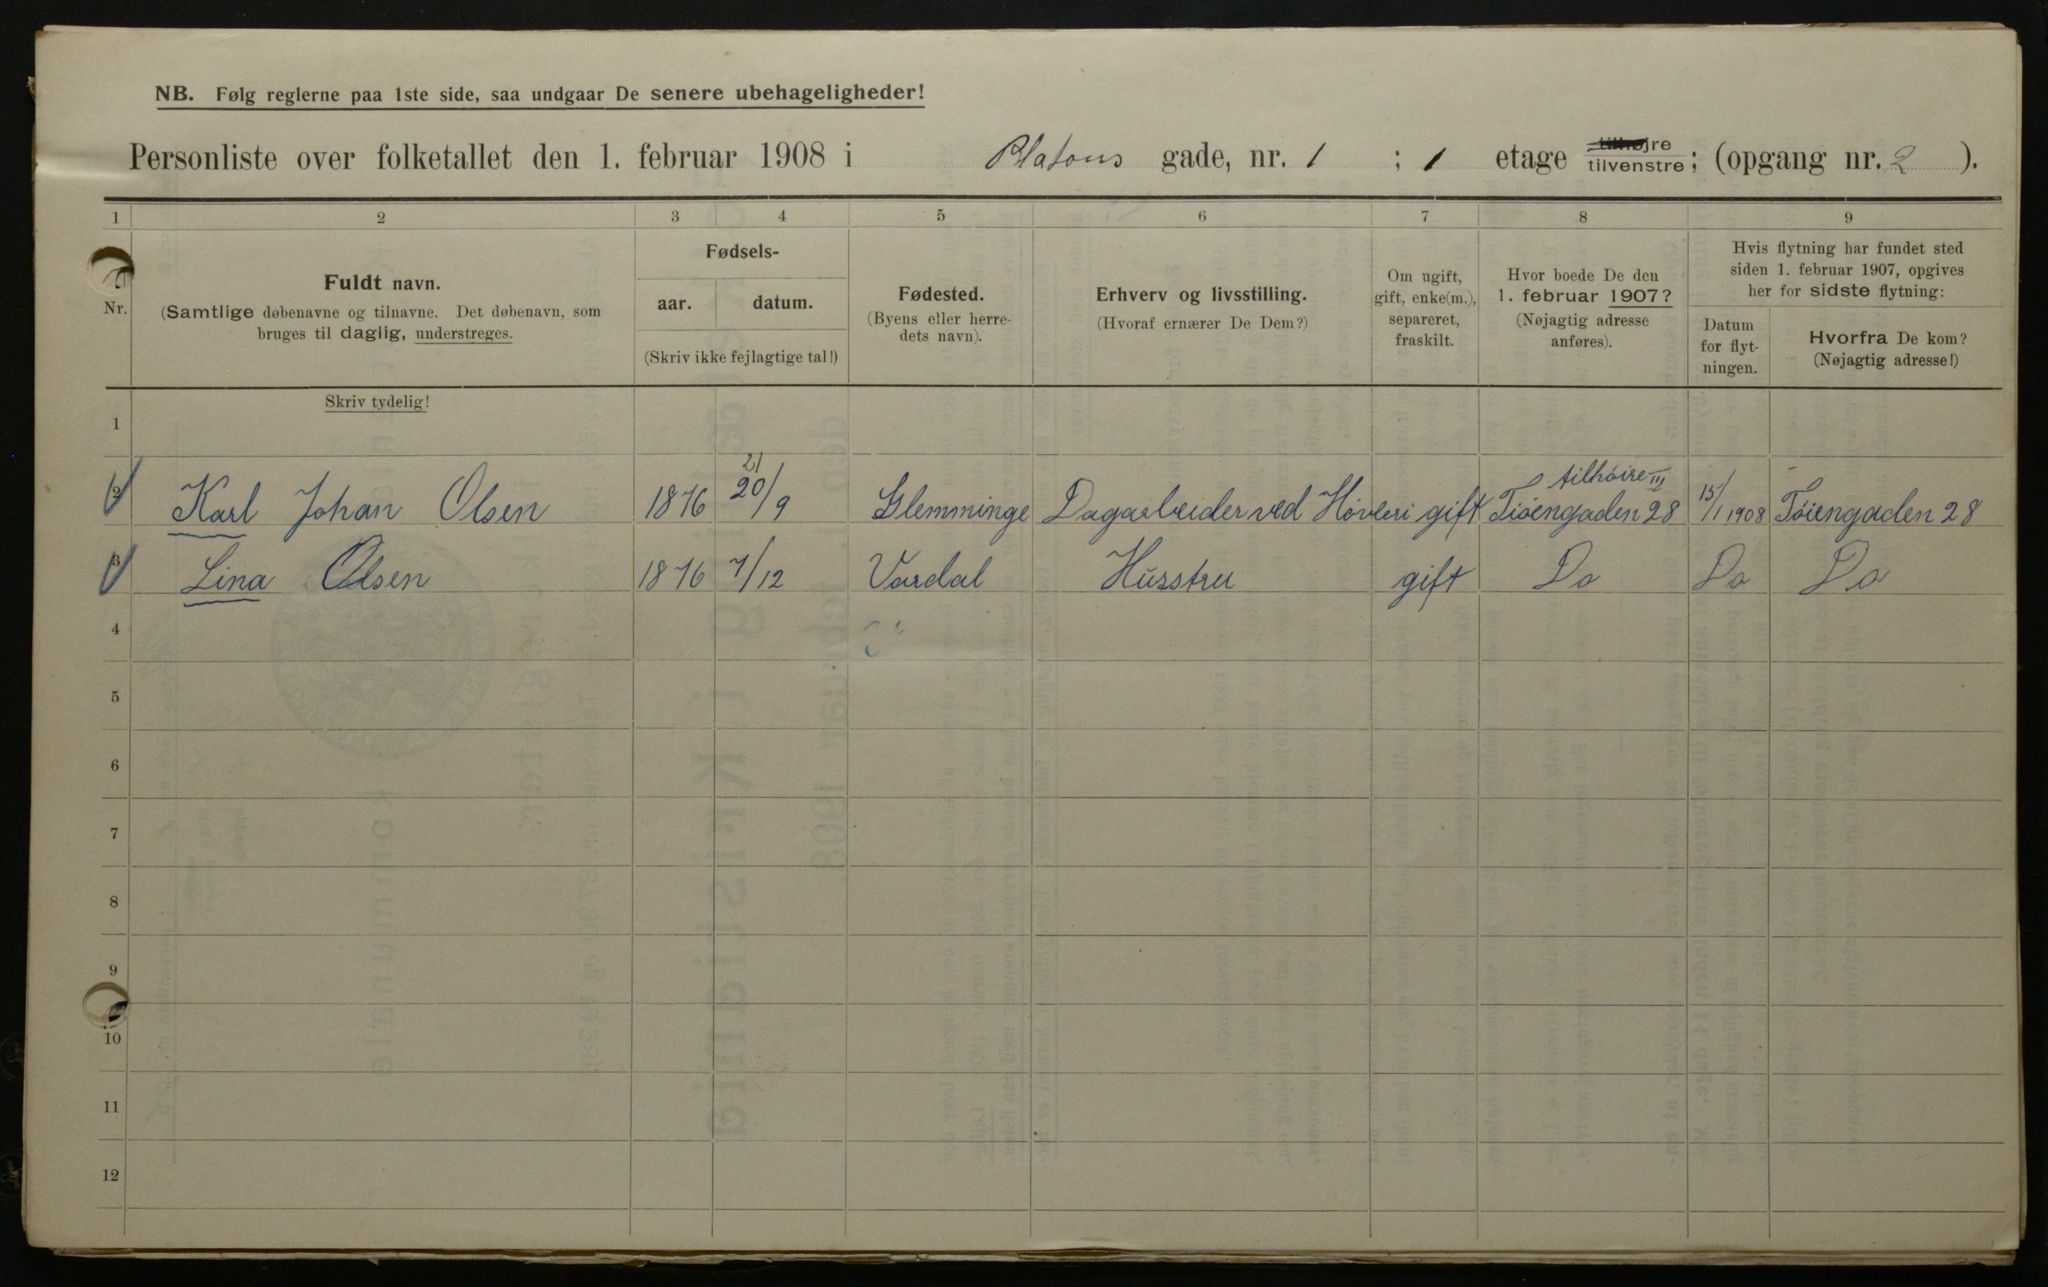 NB. Følg reglerne paa 1ste side, saa undgaar De senere ubehageligheder!
Personliste over folketallet den 1. februar 1908 i Platous gade, nr. 1 ; 1 etage tilhøjre tilvenstre; (opgang nr. 2 ).
1 2 3 4 5 6 7 8 9
Nr.
Fuldt navn.
(Samtlige døbenavne og tilnavne. Det døbenavn, som
bruges til daglig, understreges.
Skriv tydelig!
Fødsels-
aar. datum.
(Skriv ikke fejlagtige tal!)
Fødested.
(Byens eller herre-
dets navn).
Erhverv og livsstilling.
(Hvoraf ernærer De Dem?)
Om ugift,
gift, enke(m.),
separeret,
fraskilt.
Hvor boede De den
1. februar 1907?
(Nøjagtig adresse
anføres).
Hvis flytning har fundet sted
siden 1. februar 1907, opgives
her for sidste flytning:
Datum
for flyt-
ningen.
Hvorfra De kom?
(Nøjagtig adresse!)
1
21 tilhöire III
2 Karl Johan Olsen 1876 20/9 Glemminge Dagarbeider ved Høvleri gift Tiöengaden 28 15/1 1908 Töiengaden 28
3 Lina Olsen 1876 7/12 Vardal Husstru gift Do Do Do
4
5
6
7
8
9
10
11
12